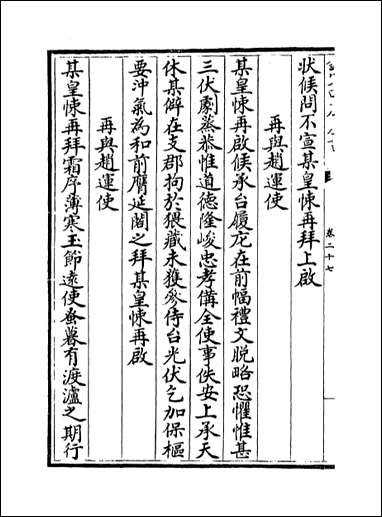 卷二十七
狀候問不宣某皇悚再拜上啟
再與趙運使
某皇悚再啟候承台履尨在前幅禮文脫略恐懼惟甚
三伏劇蒸恭惟道德隆峻忠孝備全使事佚安上承天
休某僻在支郡拘於猥藏未獲參侍台光伏乞加保樞
要沖氣為和前膺延閣之拜某皇悚再啟
再與趙運使
某皇悚再拜霜序薄寒玉節遠使蚤暮有渡瀘之期行